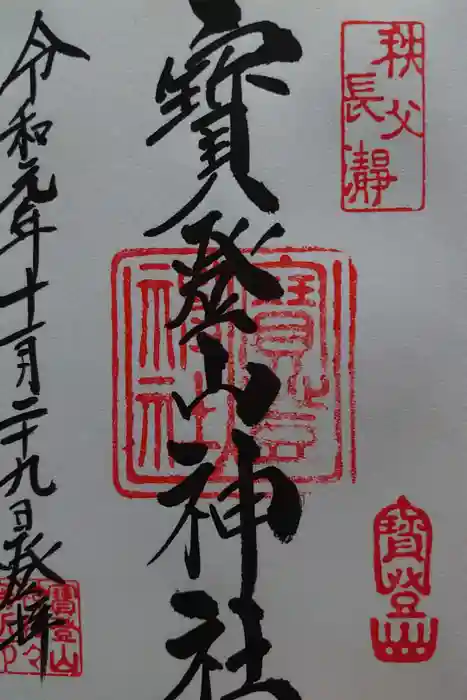 秩父
長瀞
寳登山神社
令和元年十一月二十九日登拝
寳登
神社
寳登山